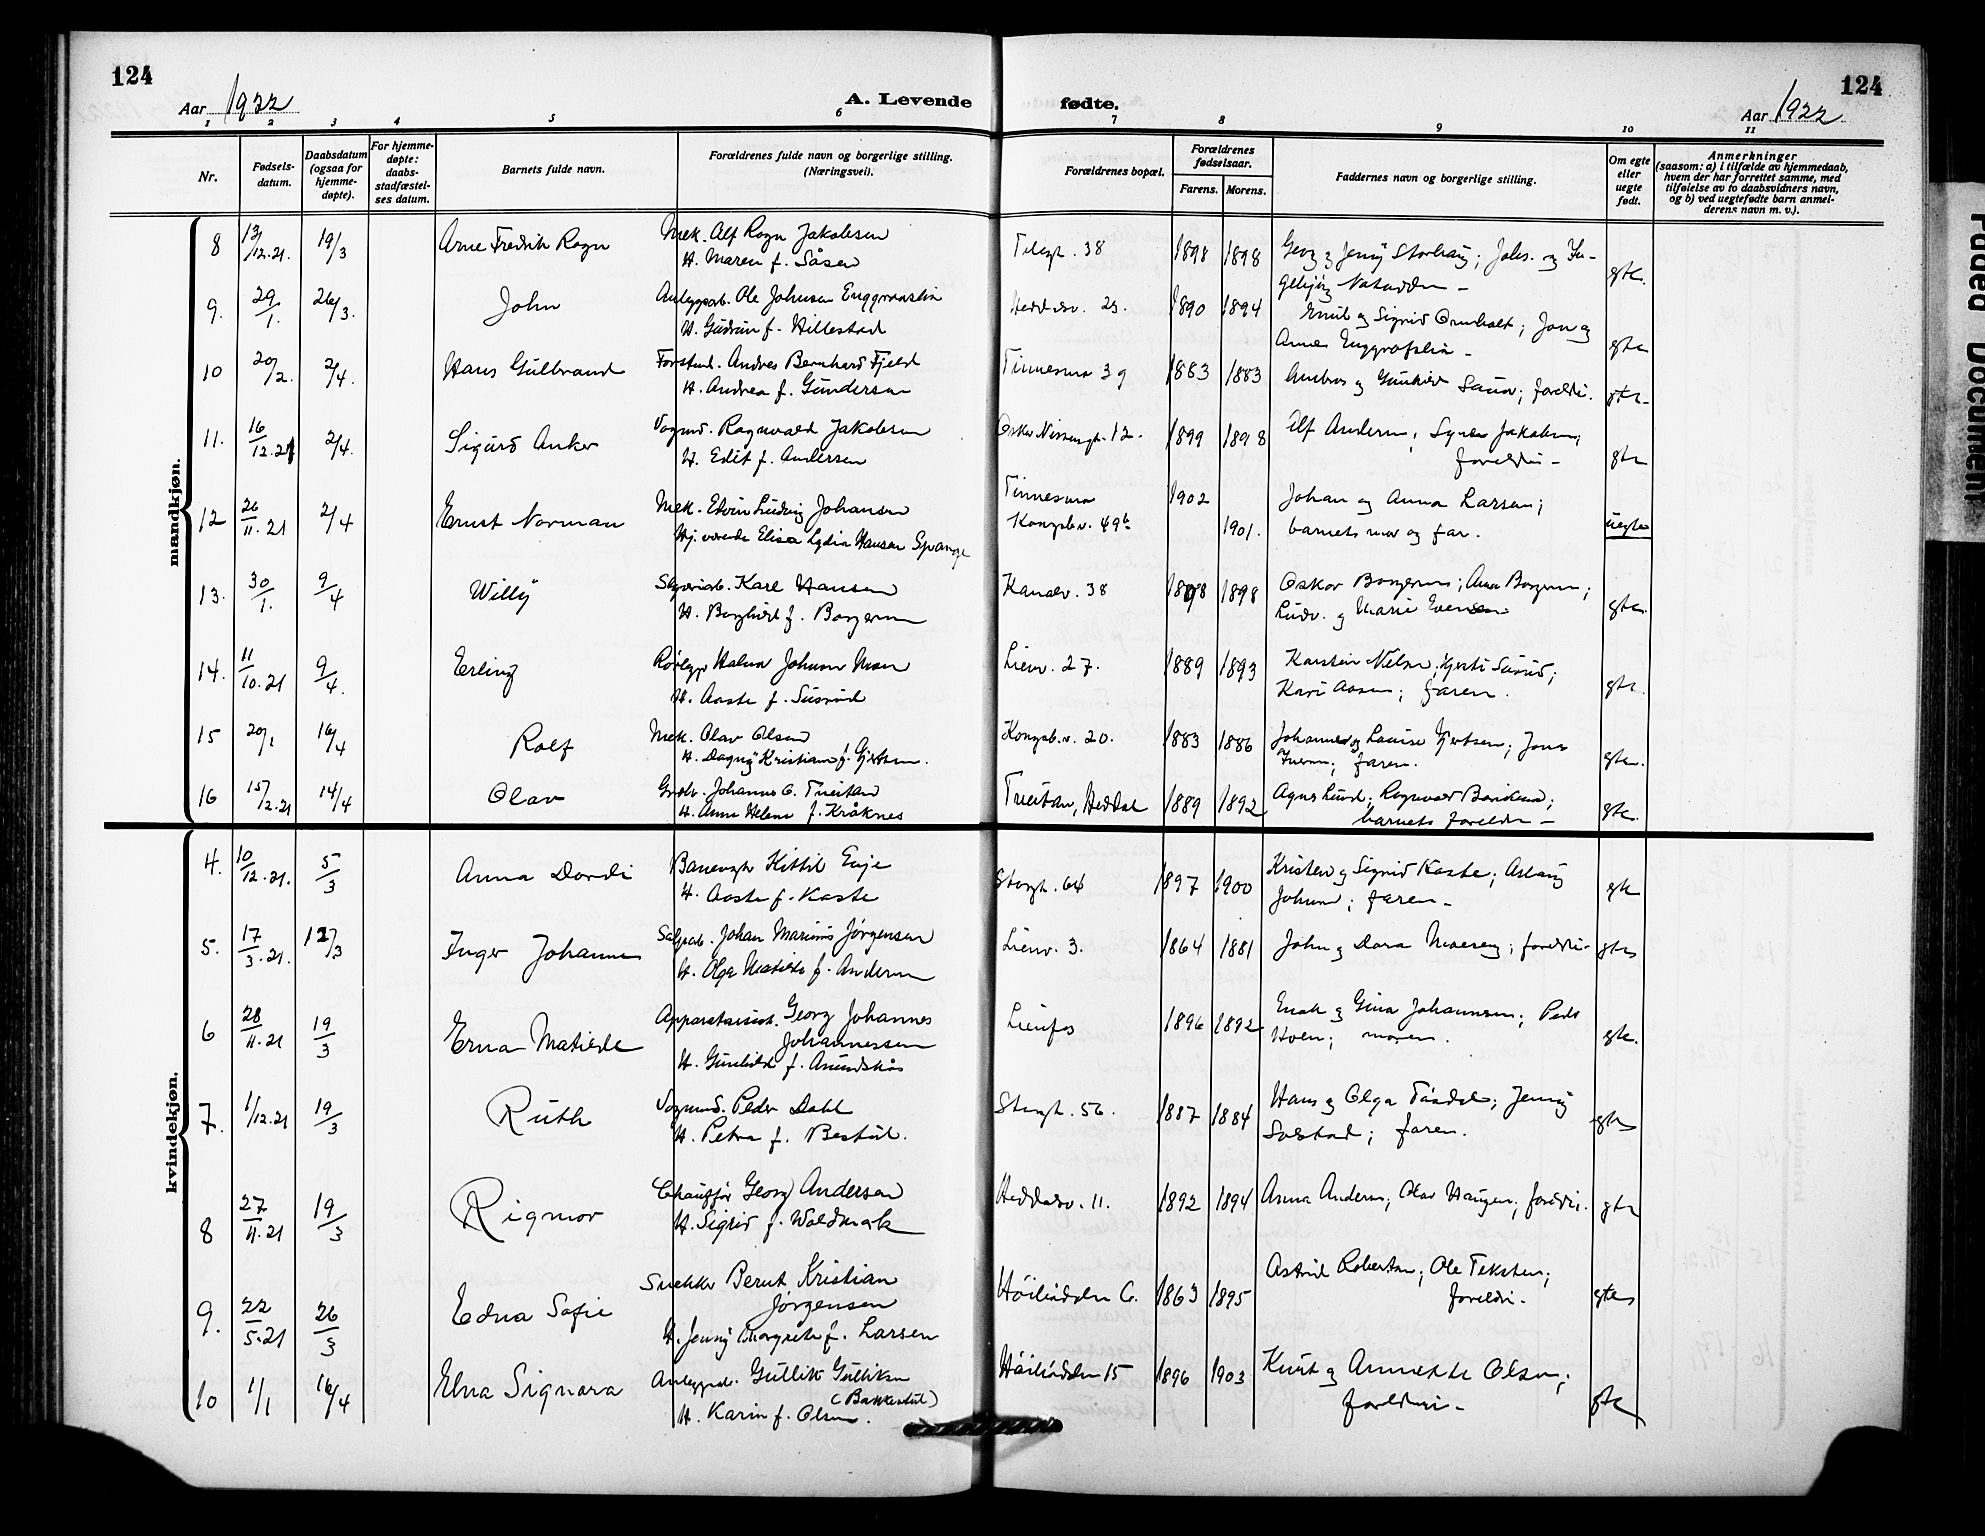 124
124
Aar 1922
A. Levende fødte.
Aar 1922
1 2 3 4 5 6 7 8 9 10 11
Nr.
Fødsels-
datum.
Daabsdatum
(ogsaa for
hjemme-
døpte).
For hjemme-
døpte:
daabs-
stadfæstel-
ses datum.
Barnets fulde navn.
Forældrenes fulde navn og borgerlige stilling.
(Næringsvei).
Forældrenes bopæl.
Forældrenes
fødselsaar.
Farens. Morens.
Faddernes navn og borgerlige stilling.
Om egte
eller
uegte
født.
Anmerkninger
(saasom: a) i tilfælde av hjemmedaab,
hvem der har forrettet samme, med
tilføielse av to daabsvidners navn,
og b) ved uegtefødte barn anmel-
derens navn m. v.).
mandkjøn.
8 13/12.21. 19/3 Arne Fredrik Rogn Mek. Alf Rogn Jakobsen Telegt. 38 1898 1898 Georg og Jenny Storhaug; Johs. og In-
H. Maren f. Såsen gte.
9. 29/1. 26/3. John Anleggsarb. Ole Johnsen Heddalsv. 23. 1890 1894 Emil og Sigrid Ormholt; Jon og
H. Gudrun f. Hillestad gte
10 20/2. 2/4. Hans Gulbrand Forstand. Andres Bernhard Fjeld Tinnesmo 39 1883 1883 foreldri. gte-
H. Andrea f. Gundersen
11. 16/12.21 2/4. Sigurd Anker Vognmd. Ragnvald Jakobsen Oskar Nissensgt. 12. 1899 1898 Alf Andersen; Signe Jakobsen;
H. Edit f. Andersen foreldri - gte
12 26/11.21 2/4 Ernst Norman Mek. Edvin Ludvig Johansen Tinnesmo 1902 Johan og Anna Larsen;
Hj. værende Elisa Lydia Hansen Spange Kongsb.v. 49b 1901. barnets mor og far. uegte
13. 30/1. 9/4 Willy Karl Hansen Kanalv. 38 1898 1898 Oskar Borgersen; Anna Borgersen;
H. Borghild f. Borgersen Ludv. og Marie Evensen gte.
14. 11/10.21 9/4. Erling Halvor Johnsen Moen Lienv. 27. 1889 1893 Karstein Nilsen;
H. Aaste f. Susrud Kari Aasen; faren. gte.
15 20/1 16/4 Rolf Mek. Olav Olsen Kongsb.v. 20. 1883 1886 Johannes og Louise Gjertsen; Jons
H. Dagny Kristiane f. Gjertsen. Iversen; faren. gte.
16 15/2.21 14/4 Olav Grdbr. Johannes O. Tveitan Tveitan, Heddal 1889 1892 Agnes Lund; Ragnvald
H. Anne Helene f. Kråknes barnets foreldri - gte.
kvindekjøn.
4. 10/12.21. 5/3 Anna Dordi Kittil Evje Storgt. 64 1897 1900 Kristen og Sigrid Kaste; Aslaug
H. Aaste f. Kaste Johnsen; faren - gte
5. 17/3.21. 12/3 Inger Johanne Johan Marius Jørgensen Lienv. 3. 1864 1881 John og Dora Moseng; foreldri- gte
H. Olga Matilde f. Andersen
6 28/11.21 19/3 Erna Matilde Georg Johannes Lienfos 1896 1892 Enok og Gina Johannessen; Peder
Johannessen Hoen; moren. gte.
H. Gunhild f. Amundskås
7. 1/12.21 19/3 Ruth Vognmd. Peder Dahl Storgt. 56. 1887 1884 Hans og Olga Tåsdal; Jenny
H. Petra f. Bestul. Solstad; faren. gte
8 27/11.21 19/3 Rigmor Chauffør Georg Andersen Heddalsv. 11. 1892 1894 Anna Andersen; Olav Haugen; foreldri. gte
H. Sigrid f. Woldmark
9. 22/5.21 26/3 Edna Sofie Snekker Bernt Kristian Høiliåsen 6. 1863 1895 Astrid Robertsen; Ole Teksten;
Jørgensen foreldri. gte
H. Jenny Margrethe f. Larsen
10 1/1 16/4 Elna Signora Anleggsarb. Gullik Gulliksen Høiliåsen 15 1896 1903 Knut og Annette Olsen;
(Bakkestul)
H. Karin f. Olsen. foreldri - gte
Faded Document